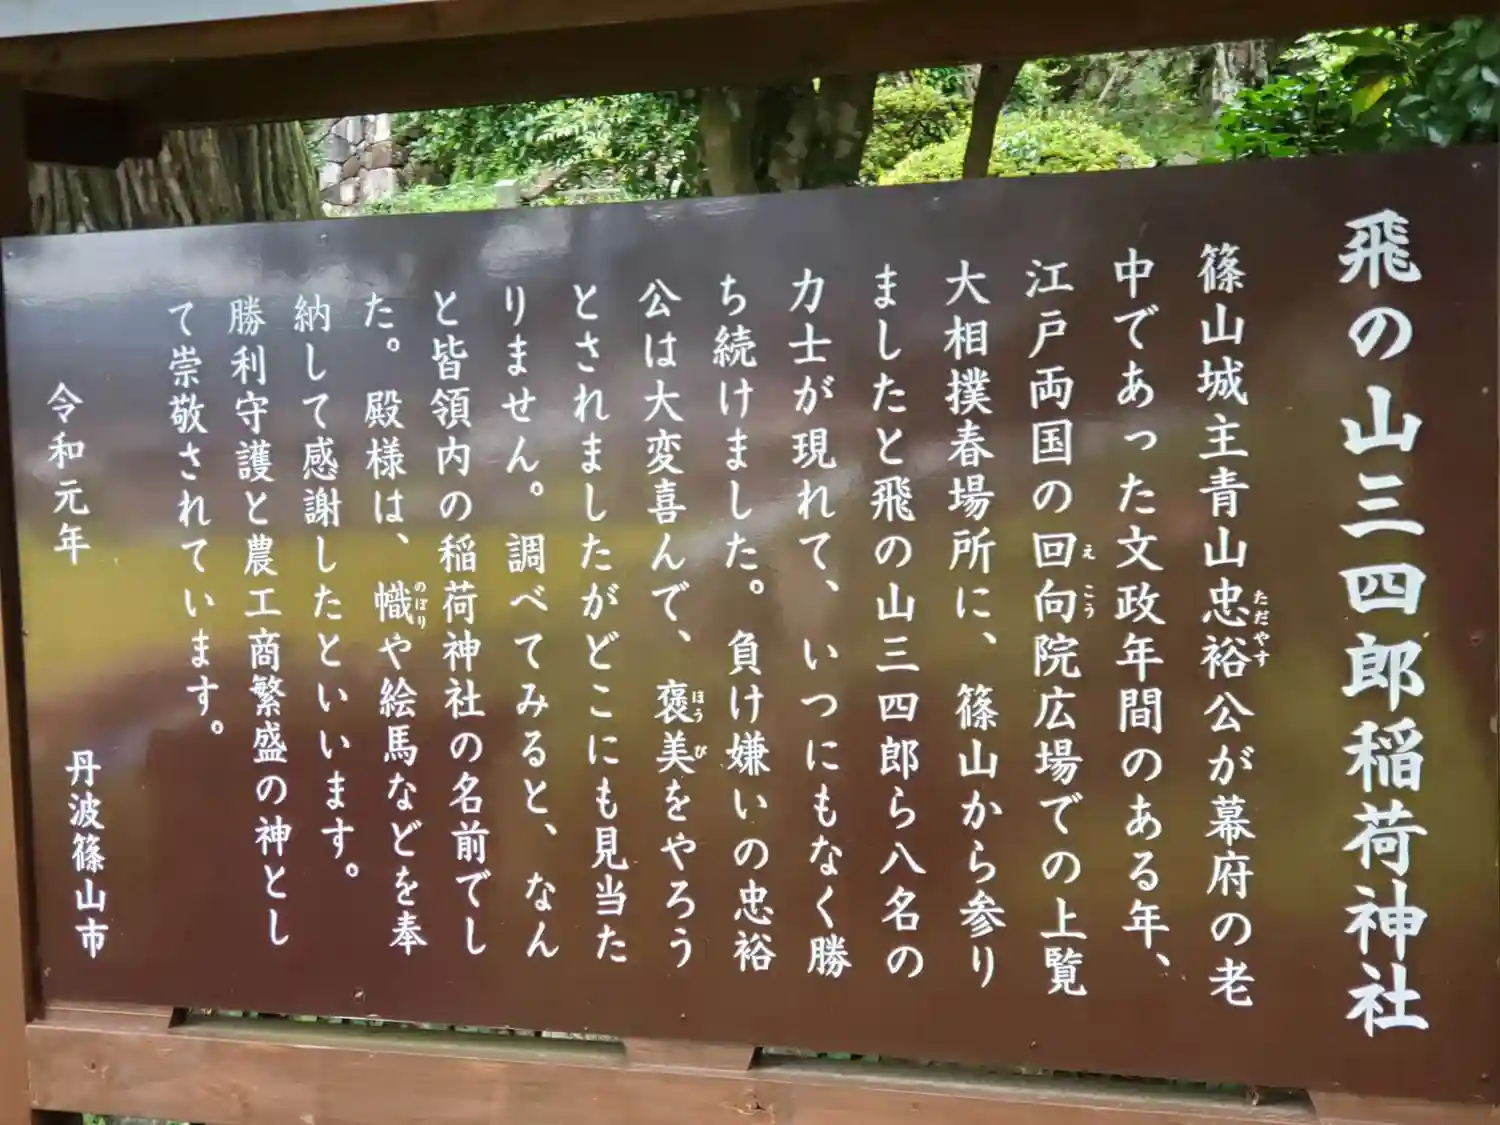 飛の山三四郎稲荷神社
篠山城主青山忠裕公が幕府の老
ただやす
中であった文政年間のある年、
江戸両国の回向院広場での上覧
えこう
大相撲春場所に、篠山から参り
ましたと飛の山三四郎ら八名の
力士が現れて、いつにもなく勝
ち続けました。負け嫌いの忠裕
公は大変喜んで、褒美をやろう
ほうび
とされましたがどこにも見当た
りません。調べてみると、なん
と皆領内の稲荷神社の名前でし
た。殿様は、幟や絵馬などを奉
のぼり
納して感謝したといいます。
勝利守護と農工商繁盛の神とし
て崇敬されています。
令和元年 丹波篠山市